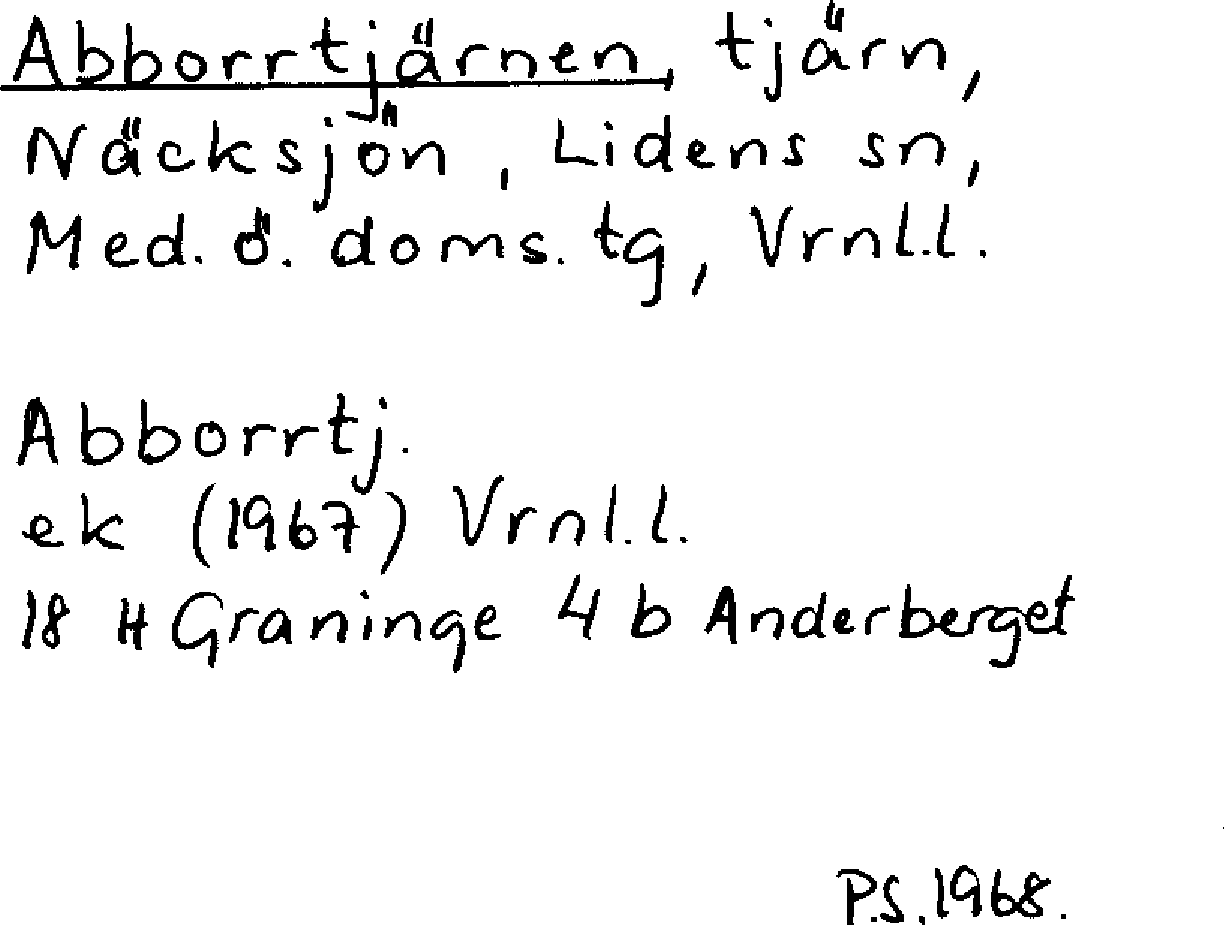 Abborrtjärnen, tjärn,
Näcksjön, Lidens sn,
Med. ö. doms. tg, Vrnl.l.
Abborrtj.
ek (1967) Vrnl.l.
18 H Graninge 4 b Anderberget
P.S. 1968.